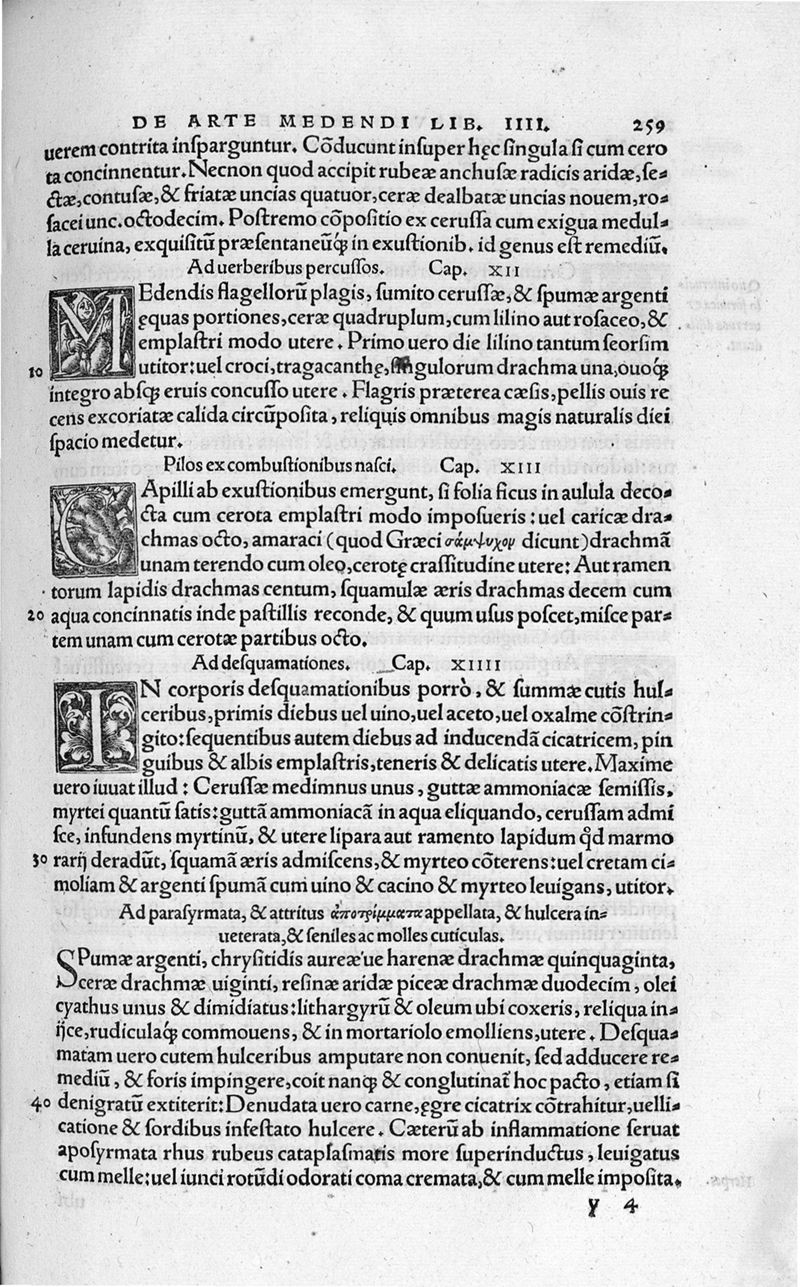 DE ARTE MEDENDI LIB. IIII. 259
uerem contrita insparguntur. Cōducunt insuper hęc singula si cum cero
ta concinnentur. Necnon quod accipit rubeæ anchusæ radicis aridæ, se-
ctæ, contusæ, & friatæ uncias quatuor, ceræ dealbatæ uncias nouem, ro-
sacei unc. octodecim. Postremo cōpositio ex cerussa cum exigua medul-
la ceruina, exquisitū præsentaneūq́; in exustionib. id genus est remediū.
Ad uerberibus percussos. Cap. XII
MEdendis flagellorū plagis, sumito cerussæ, & spumæ argenti
ęquas portiones, ceræ quadruplum, cum lilino aut rosaceo, &
emplastri modo utere. Primo uero die lilino tantum seorsim
10 utitor: uel croci, tragacanthę, singulorum drachma una, ouoq́;
integro absq; eruis concusso utere. Flagris præterea cæsis, pellis ouis re
cens excoriatæ calida circūposita, reliquis omnibus magis naturalis diei
spacio medetur.
Pilos ex combustionibus nasci. Cap. XIII
CApilli ab exustionibus emergunt, si folia ficus in aulula deco-
cta cum cerota emplastri modo imposueris: uel caricæ dra-
chmas octo, amaraci (quod Græci σάμψυχον dicunt) drachmā
unam terendo cum oleo, cerotę crassitudine utere: Aut ramen
torum lapidis drachmas centum, squamulæ æris drachmas decem cum
20 aqua concinnatis inde pastillis reconde, & quum usus poscet, misce par-
tem unam cum cerotæ partibus octo.
Ad desquamationes. Cap. XIIII
IN corporis desquamationibus porrò, & summæ cutis hul-
ceribus, primis diebus uel uino, uel aceto, uel oxalme cōstrin-
gito: sequentibus autem diebus ad inducendā cicatricem, pin
guibus & albis emplastris, teneris & delicatis utere. Maxime
uero iuuat illud: Cerussæ medimnus unus, guttæ ammoniacæ semissis,
myrtei quantū satis: guttā ammoniacā in aqua eliquando, cerussam admi
sce, infundens myrtinū, & utere lipara aut ramento lapidum qd̄ marmo
30 rarij deradūt, squamā æris admiscens, & myrteo cōterens: uel cretam ci-
moliam & argenti spumā cum uino & cacino & myrteo leuigans, utitor.
Ad parasyrmata, & attritus ἀποτρίμματα appellata, & hulcera in-
ueterata, & seniles ac molles cuticulas.
SPumæ argenti, chrysitidis aureæ'ue harenæ drachmæ quinquaginta,
ceræ drachmæ uiginti, resinæ aridæ piceæ drachmæ duodecim, olei
cyathus unus & dimidiatus: lithargyrū & oleum ubi coxeris, reliqua in-
ijce, rudiculaq́; commouens, & in mortariolo emolliens, utere. Desqua-
matam uero cutem hulceribus amputare non conuenit, sed adducere re-
mediū, & foris impingere, coit nanq́; & conglutinat̄ hoc pacto, etiam si
40 denigratū extiterit: Denudata uero carne, ęgre cicatrix cōtrahitur, uelli-
catione & sordibus infestato hulcere. Cæterū ab inflammatione seruat
aposyrmata rhus rubeus cataplasmatis more superinductus, leuigatus
cum melle: uel iunci rotūdi odorati coma cremata, & cum melle imposita.
y 4